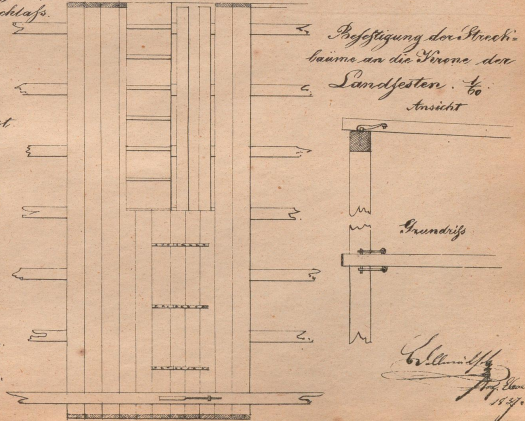 chlaſs.
Befestigung der Streck-
bäume an die Krone der
Landfesten. 1/60
Ansicht
Grundriſs